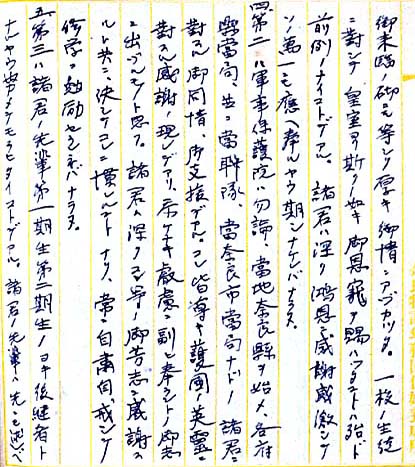 御来臨ノ砌ニモ等シク厚キ御情ニアヅカッタ。一校ノ生徒
ニ対シテ皇室ヨリ斯ノ如キ御恩寵ヲ賜ハッタコトハ殆ド
前例ノナイコトデアル。諸君ハ深ク鴻恩ニ感謝感激シテ
ソノ萬一ニモ應ヘ奉ルヤウ期シナケレバナラヌ。
四第二ハ軍事保護院ハ勿論、當地奈良縣ヲ始メ、各府
縣當局、並ニ當聯隊、當奈良市當局ナドノ諸君ニ
対スル御同情、御支援デアル。コレ皆尊キ護國ノ英霊ニ
対スル感謝ノ現レデアリ、忝ケナキ叡慮ニ副ヒ奉ラントノ御志
ニ出ヅルモノト思フ。諸君ハ深クコレ等ノ御芳志ニ感謝ス
ルト共ニ、決シテコレニ慣レルコトナク、常ニ自粛自戒シテ
修学ニ勉励セシネバナラヌ。
五第三ハ諸君ノ先輩第一期生第二期生ノヨキ後継者ト
ナルヤウ努メテモラヒタイコトデアル。諸君ノ先輩ハ先ニモ述ベ